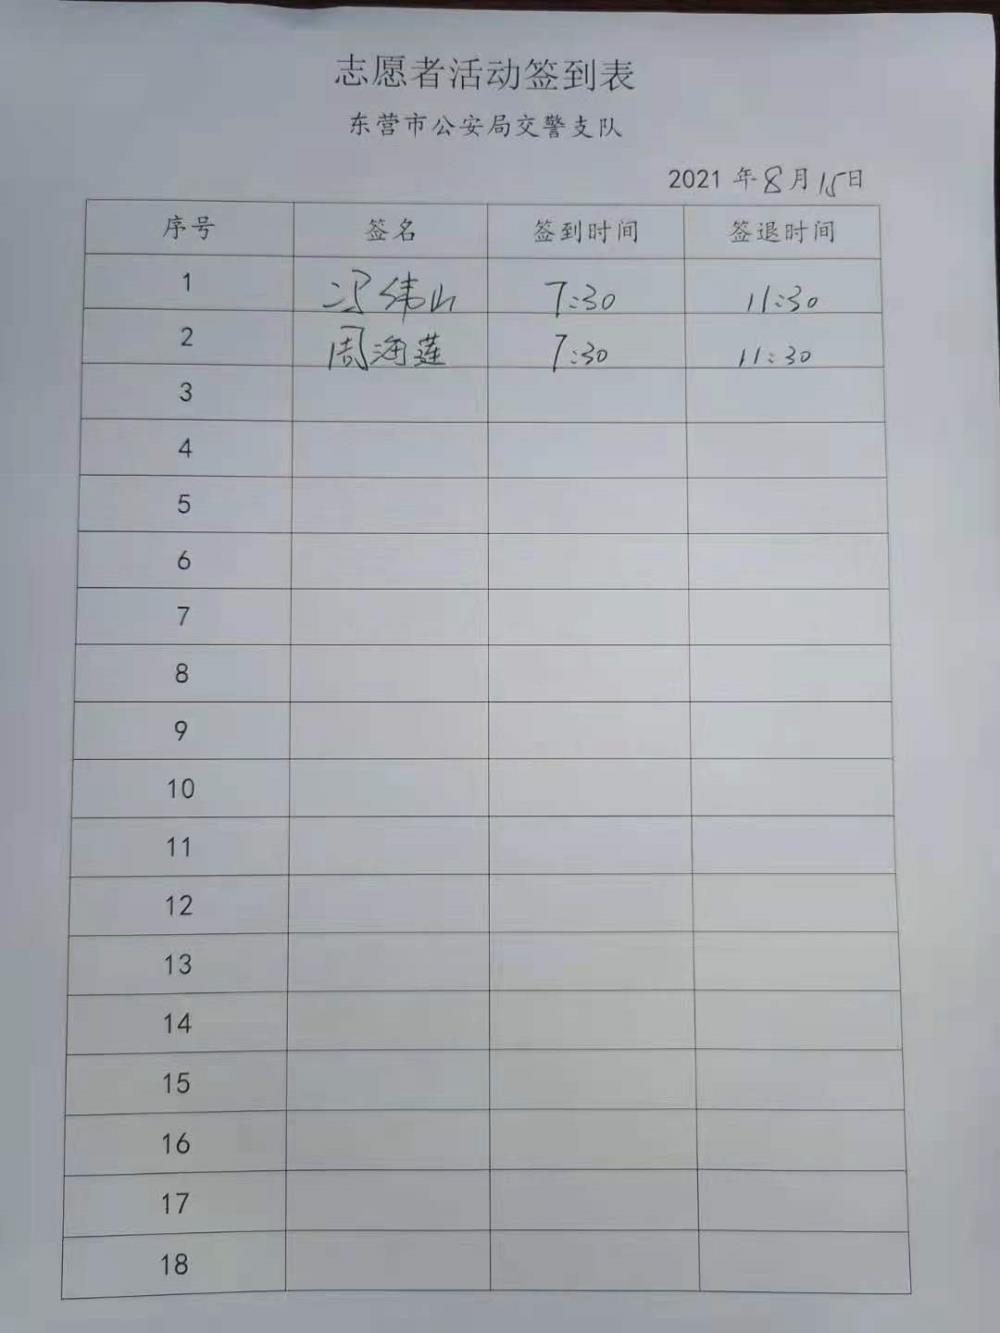 志愿者活动签到表
东营市公安局交警支队
2021 年 8 月 15 日
序号 签名 签到时间 签退时间
1 冯纬山 7:30 11:30
2 周海莲 7:30 11:30
3
4
5
6
7
8
9
10
11
12
13
14
15
16
17
18